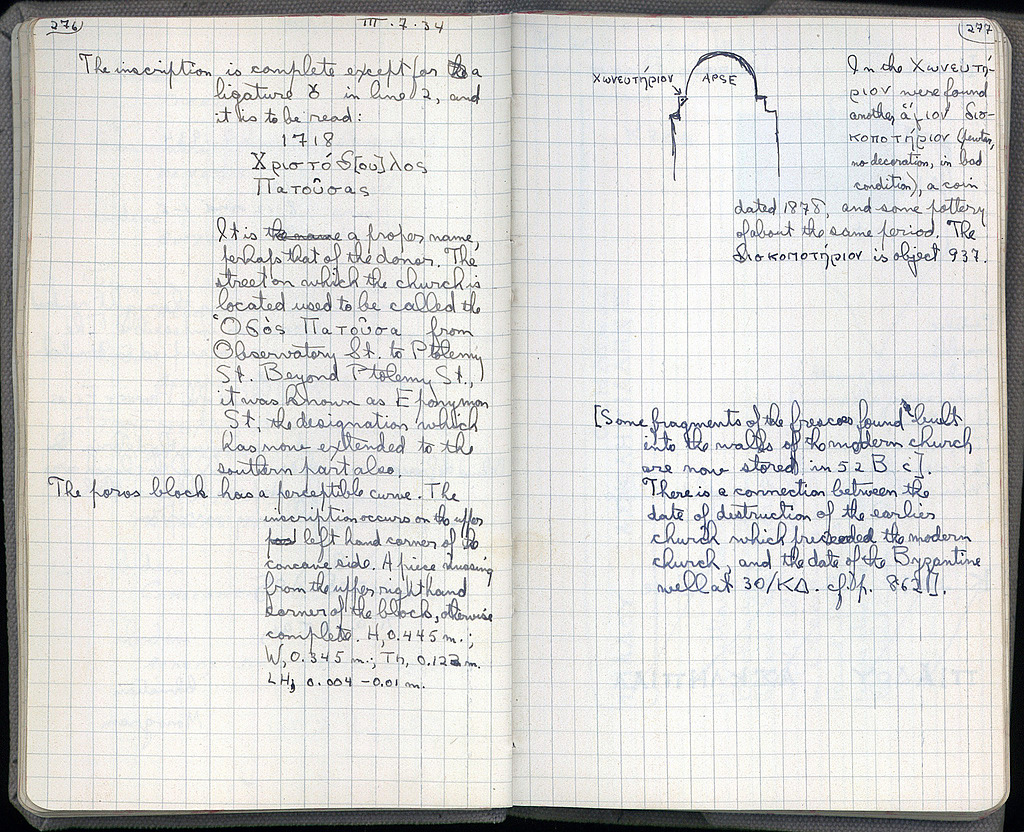 276
III.7.34
The inscription is complete except for a
ligature ȣ in line 2, and
it is to be read:
1718
Χριστόδ[ου]λος
Πατοῦσας
It is the name a proper name,
perhaps that of the donor. The
street on which the church is
located used to be called the
Ὁδὸς Πατοῦσα from
Observatory St. to Ptolemy
St. Beyond Ptolemy St.,
it was known as Eponymon
St, the designation which
has now extended to the
southern part also.
The poros block has a perceptible curve. The
inscription occurs on the upper
left hand corner of the
concave side. A piece missing
from the upper right hand
corner of the block, otherwise
complete. H, 0.445 m.;
W, 0.345 m.; Th, 0.123 m.
LH, 0.004 - 0.01 m.
277
Χωνευτήριον
APSE
In the Χωνευτή-
ριον were found
another ἅγιον δισ-
κοποτήριον (pewter,
no decoration, in bad
condition), a coin
dated 1878, and some pottery
of about the same period. The
δισκοποτήριον is object 937.
[Some fragments of the frescoes found built
into the walls of the modern church
are now stored in 52 B c].
There is a connection between the
date of destruction of the earlier
church which preceeded the modern
church, and the date of the Byzantine
well at 30/ΚΔ. cf. p. 862].